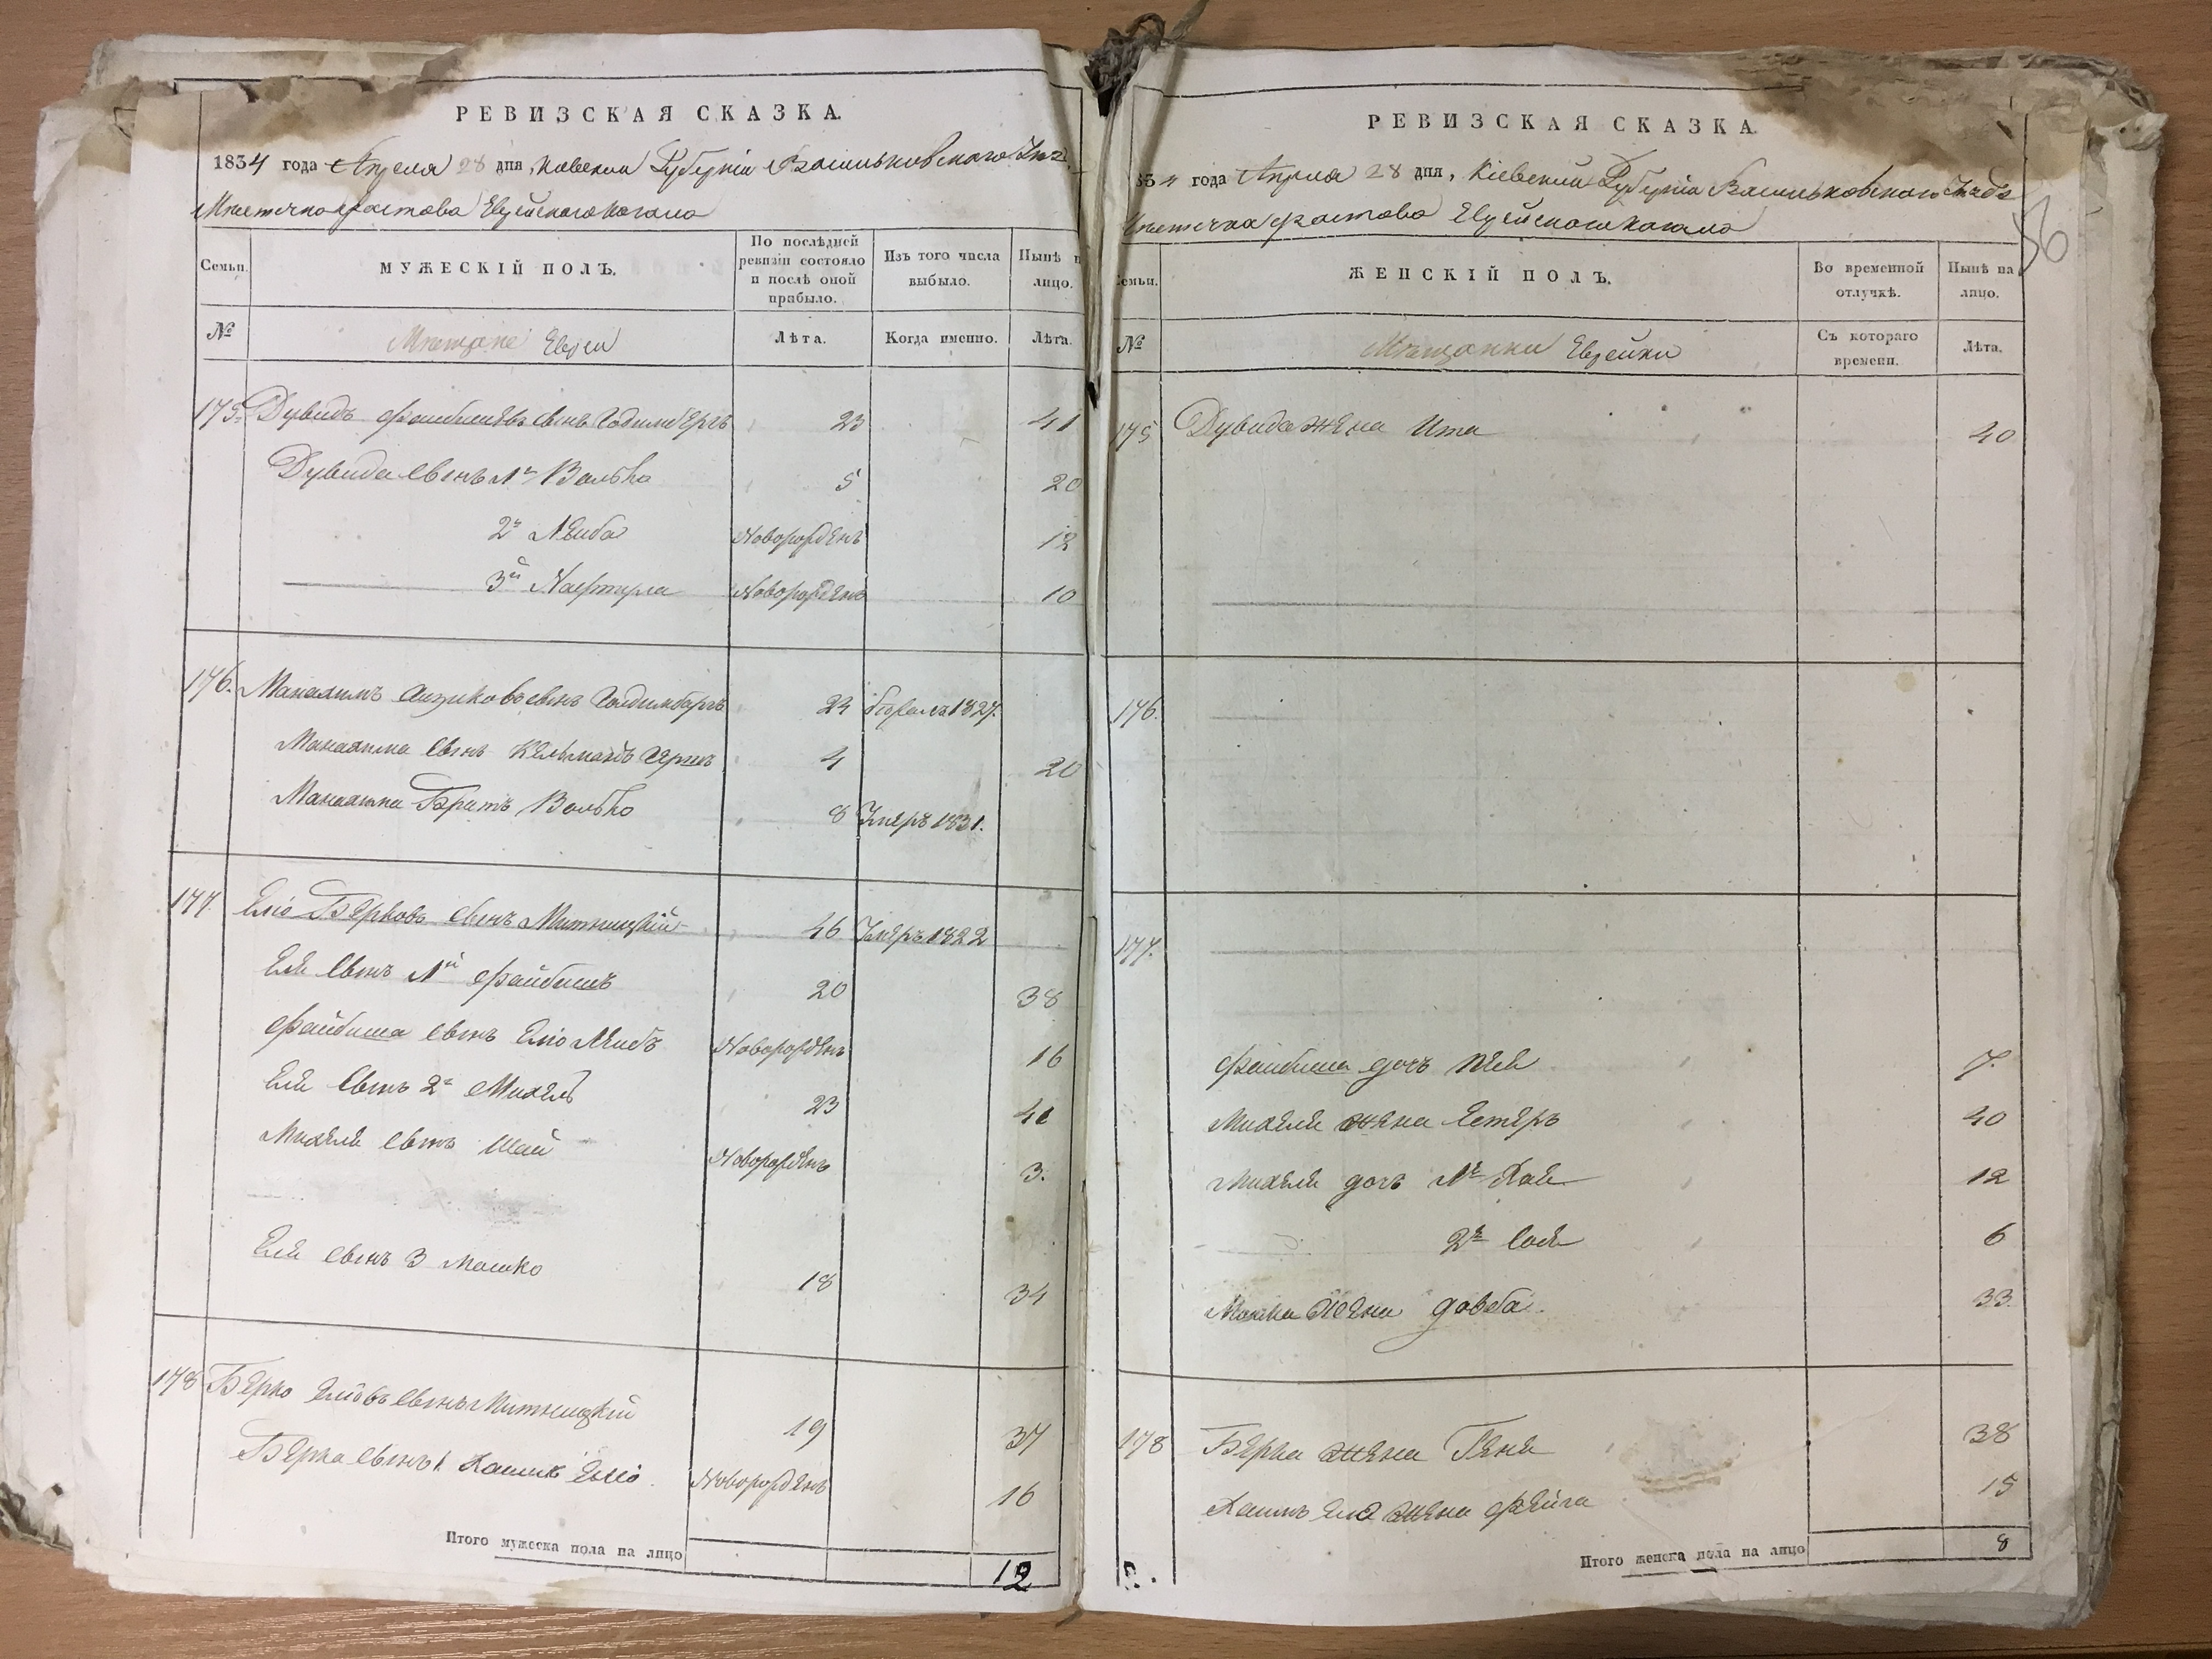 РЕВИЗСКАЯ СКАЗКА.
1834 года Апреля 28 дня, Киевской Губерніи Васильковскаго
Местечка Фастова Еврейскаго Кагала
Семьи.
МУЖЕСКІЙ ПОЛЪ.
По послѣдней ревизіи состояло и послѣ оной прибыло.
Изъ того числа выбыло.
Нынѣ на лицо.
№
Мещане Евреи
Лѣта.
Когда именно.
Лѣта.
175. Дувидъ Файбишевъ сынъ 23 41
Дувида сынъ 1й Волько 5 20
2й Лейба Новорожденъ 12
3й Новорожденъ 10
176. Манахимъ Айзиковъ сынъ 24 1827. 
Манахима сынъ Кельманъ Герш 4 20
Манахима Братъ Волько 8 Умеръ 1831.
177. Еліо Берковъ сынъ Митницкій 46 Умеръ 1822
Еля сынъ 1й Файбишъ 20 38
Файбиша сынъ Еліо Лейбъ Новорожденъ 16
Еля сынъ 2й Михель 23 41
Михеля сынъ Шая Новорожденъ 3.
Еля сынъ 3 Мошко 18 34
178 Берко Еліовъ сынъ Митницкій 19 37
Берка сынъ 1 Хаимъ Еліо. Новорожденъ 16
Итого мужеска пола на лицо 12
РЕВИЗСКАЯ СКАЗКА.
34 года Апреля 28 дня, Кіевской Губерніи Васильковскаго
Местечка Фастова Еврейскаго Кагала
56
Семьи.
ЖЕНСКІЙ ПОЛЪ.
Во временной отлучкѣ.
Нынѣ на лицо.
№
Мещанки Еврейки
Съ котораго времени.
Лѣта.
175 Дувида жена Ита 40
176.
177.
Файбиша дочь 7.
Михеля жена Естеръ 40
Михеля дочь 1я Хая 12
2я 6
Мошка жена Довба 33.
178 Берка жена Геня 38
Хаимъ Еліо жена Фейга 15
Итого женска пола на лицо 8